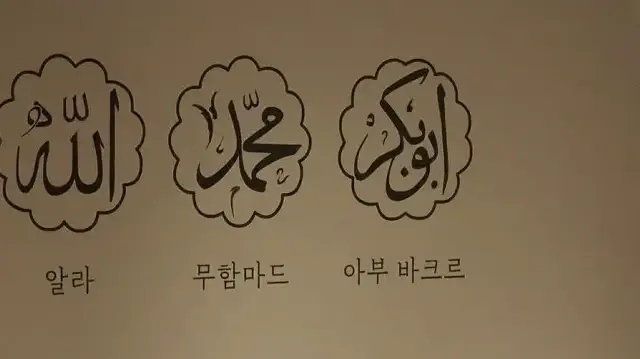 الله
محمد
ابوبكر
알라
무함마드
아부 바크르